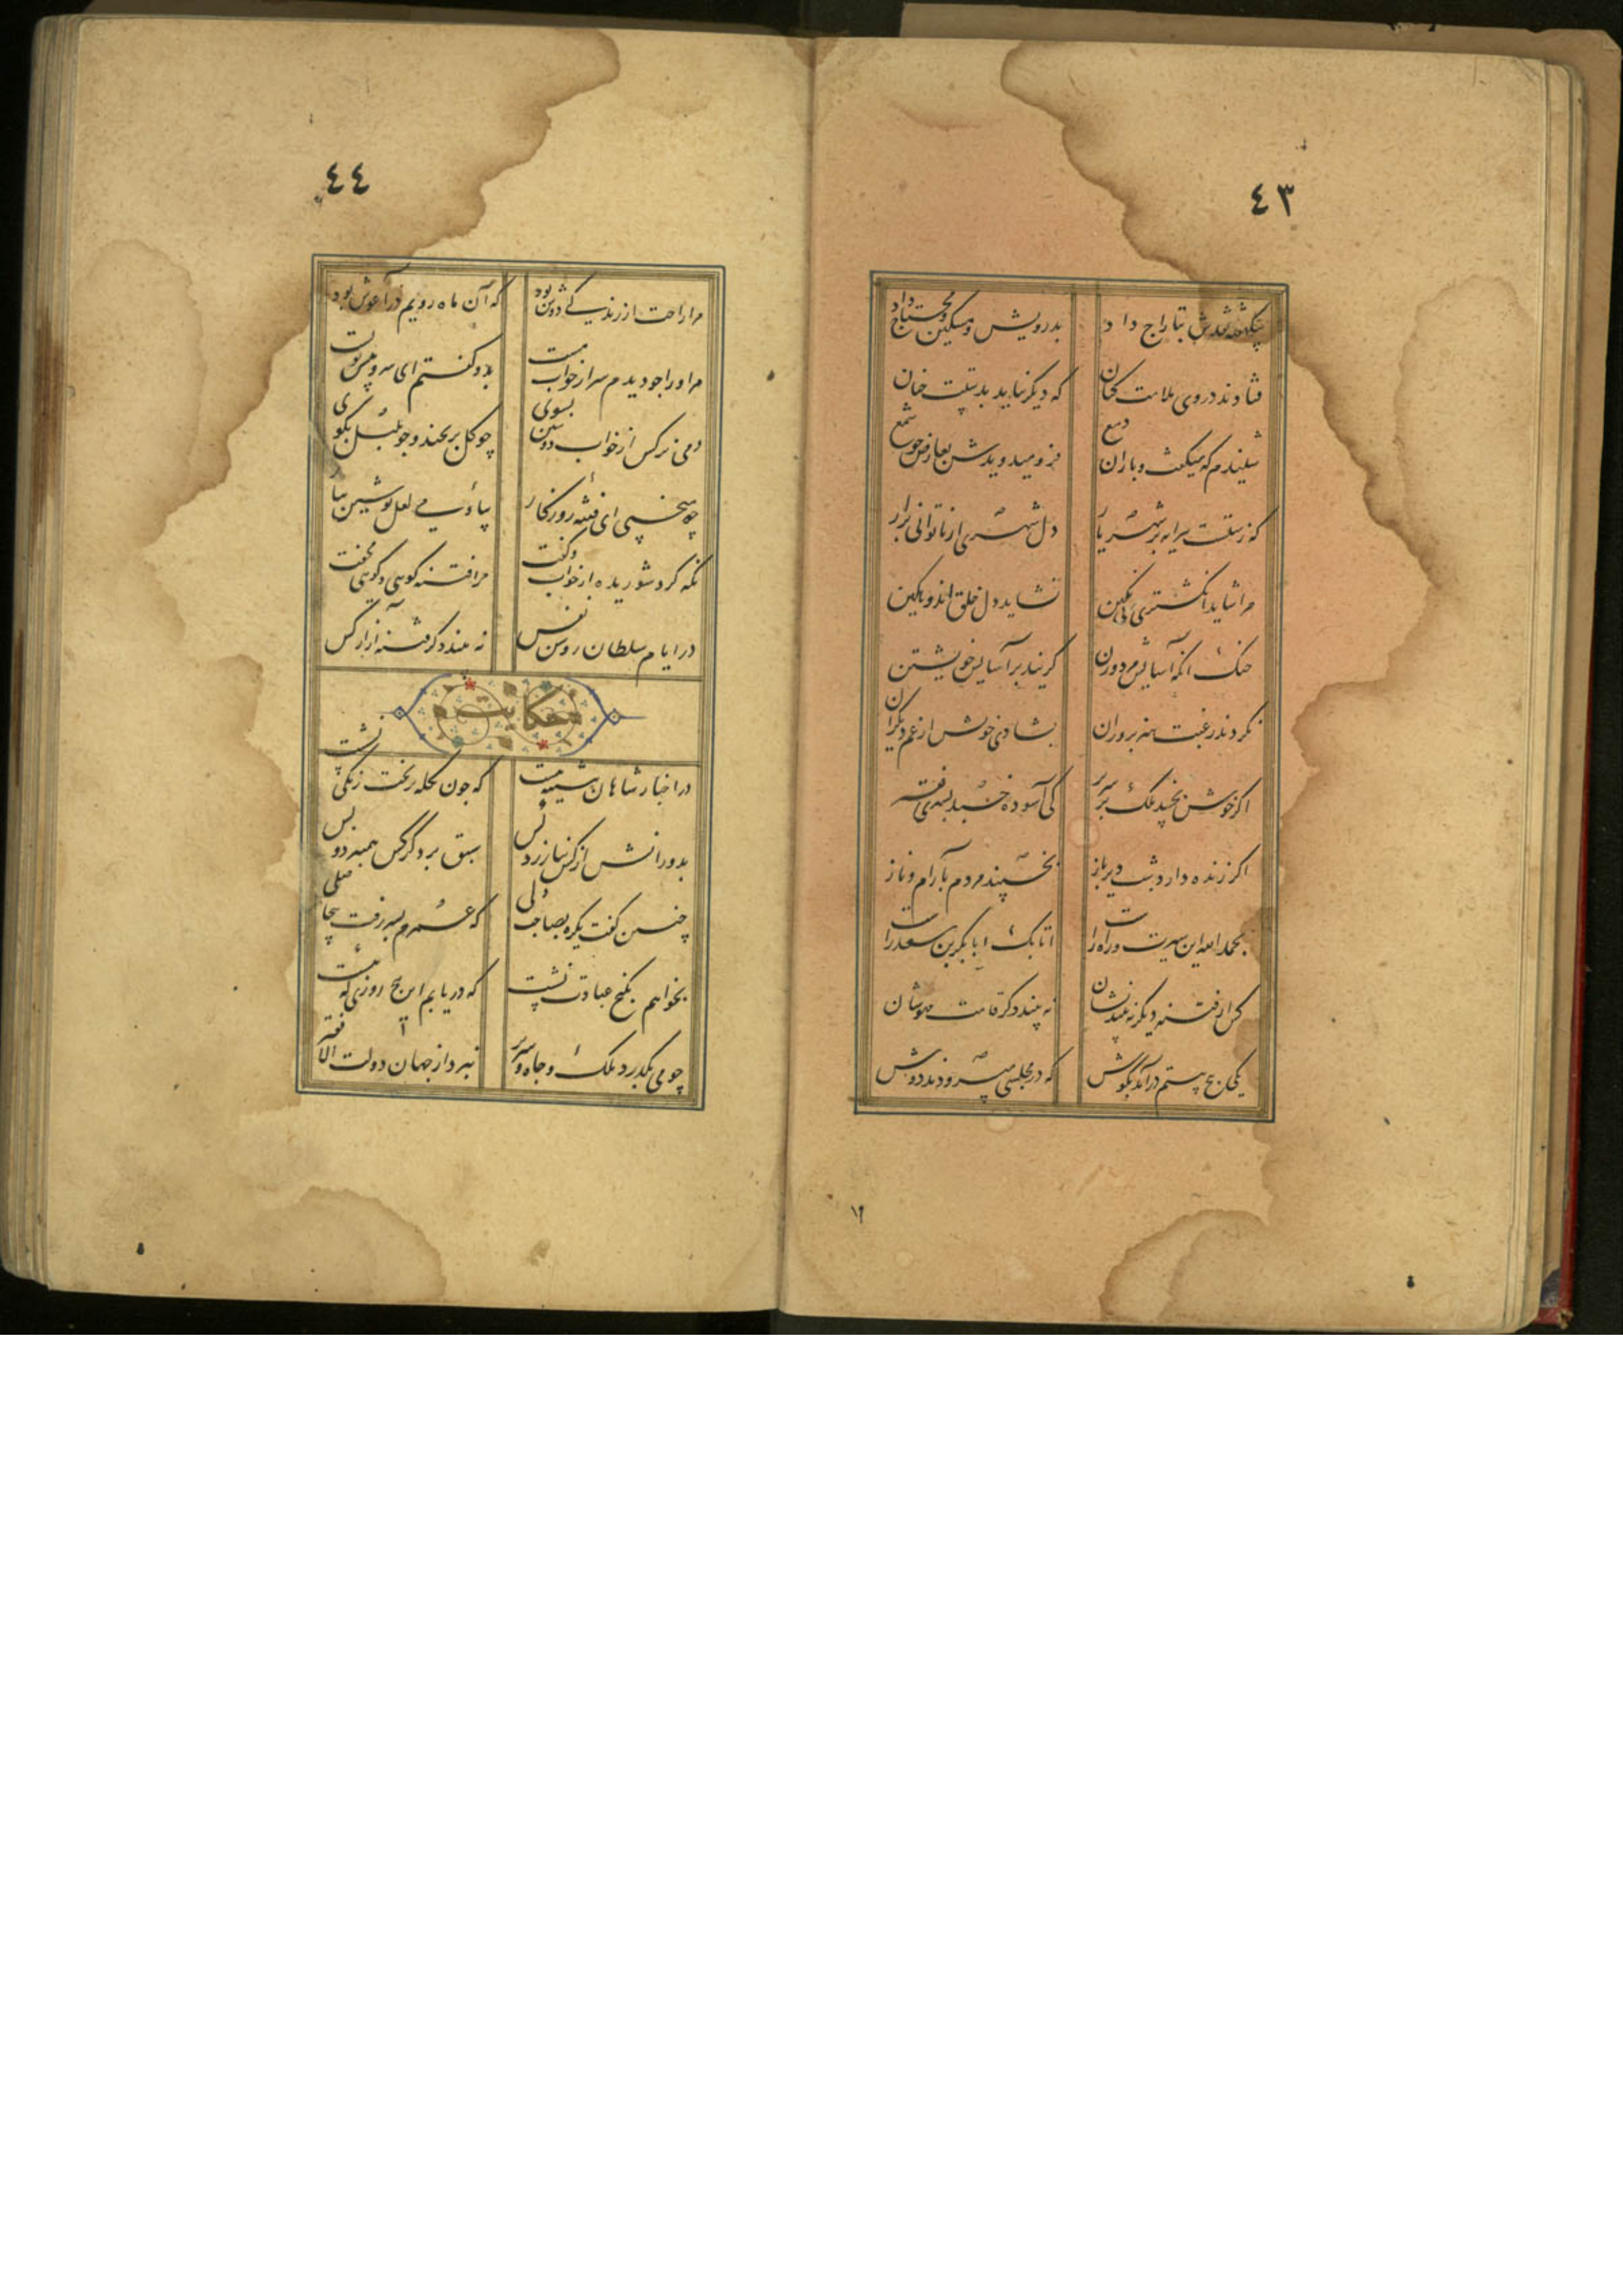 ٤٣
بیکهفته نقدش بتاراج داد بدرویش و مسکین و محتاج داد
فتادند در وی ملامت کنان که دیگر نیاید بدستت چنان
شنیدم که میگفت و باران دمع فرو میدویدش بعارض چو شمع
که زشتست پیرایه بر شهریار دل شهری از ناتوانی فکار
مرا شاید انگشتری بی نگین نشاید دل خلق اندوهگین
خنک آنکه آسایش مرد و زن گزیند بر آسایش خویشتن
نکردند رغبت هنرپروران بشادی خویش از غم دیگران
اگر خوش بخسپد ملک بر سریر
اگر زنده دارد شب دیرباز بخسپند مردم بآرام و ناز
بحمدالله این سیرت و راه راست اتابک ابابکر بن سعد راست
کس از فتنه دیگر نه بیند نشان نه بیند دگر قامت مهوشان
یکی پنج بیتم درآمد بگوش که در مجلسی میسرودند دوش
١٢
٤٤
مرا راحت از زندگی دوش بود که آن ماه رویم در آغوش بود
مر او را چو دیدم سر از خواب مست بدو گفتم ای سرو پیش تو پست
دمی نرگس از خواب نوشین بشوی چو گل بر بخند و چو بلبل بگوی
چه میخسپی ای فتنه روزگار بیا و می لعل نوشین بیار
نگه کرد شوریده از خواب و گفت مرا فتنه گویی و گویی مخفت
در ایام سلطان روشن نفس نه بیند دگر فتنه از ار کس
حکایت
در اخبار شاهان پیشینه هست که چون تکله بر تخت زنگی نشست
بدورانش از کس نیازرد کس سبق برد گرکس همینبود و بس
چنین گفت یکره بصاحب دلی که عمرم بسر رفت بیحاصلی
بخواهم بکنج عبادت نشست که دریابم این پنج روزی که هست
چو می بگذرد ملک و جاه و سریر نبرد از جهان دولت الا فقیر